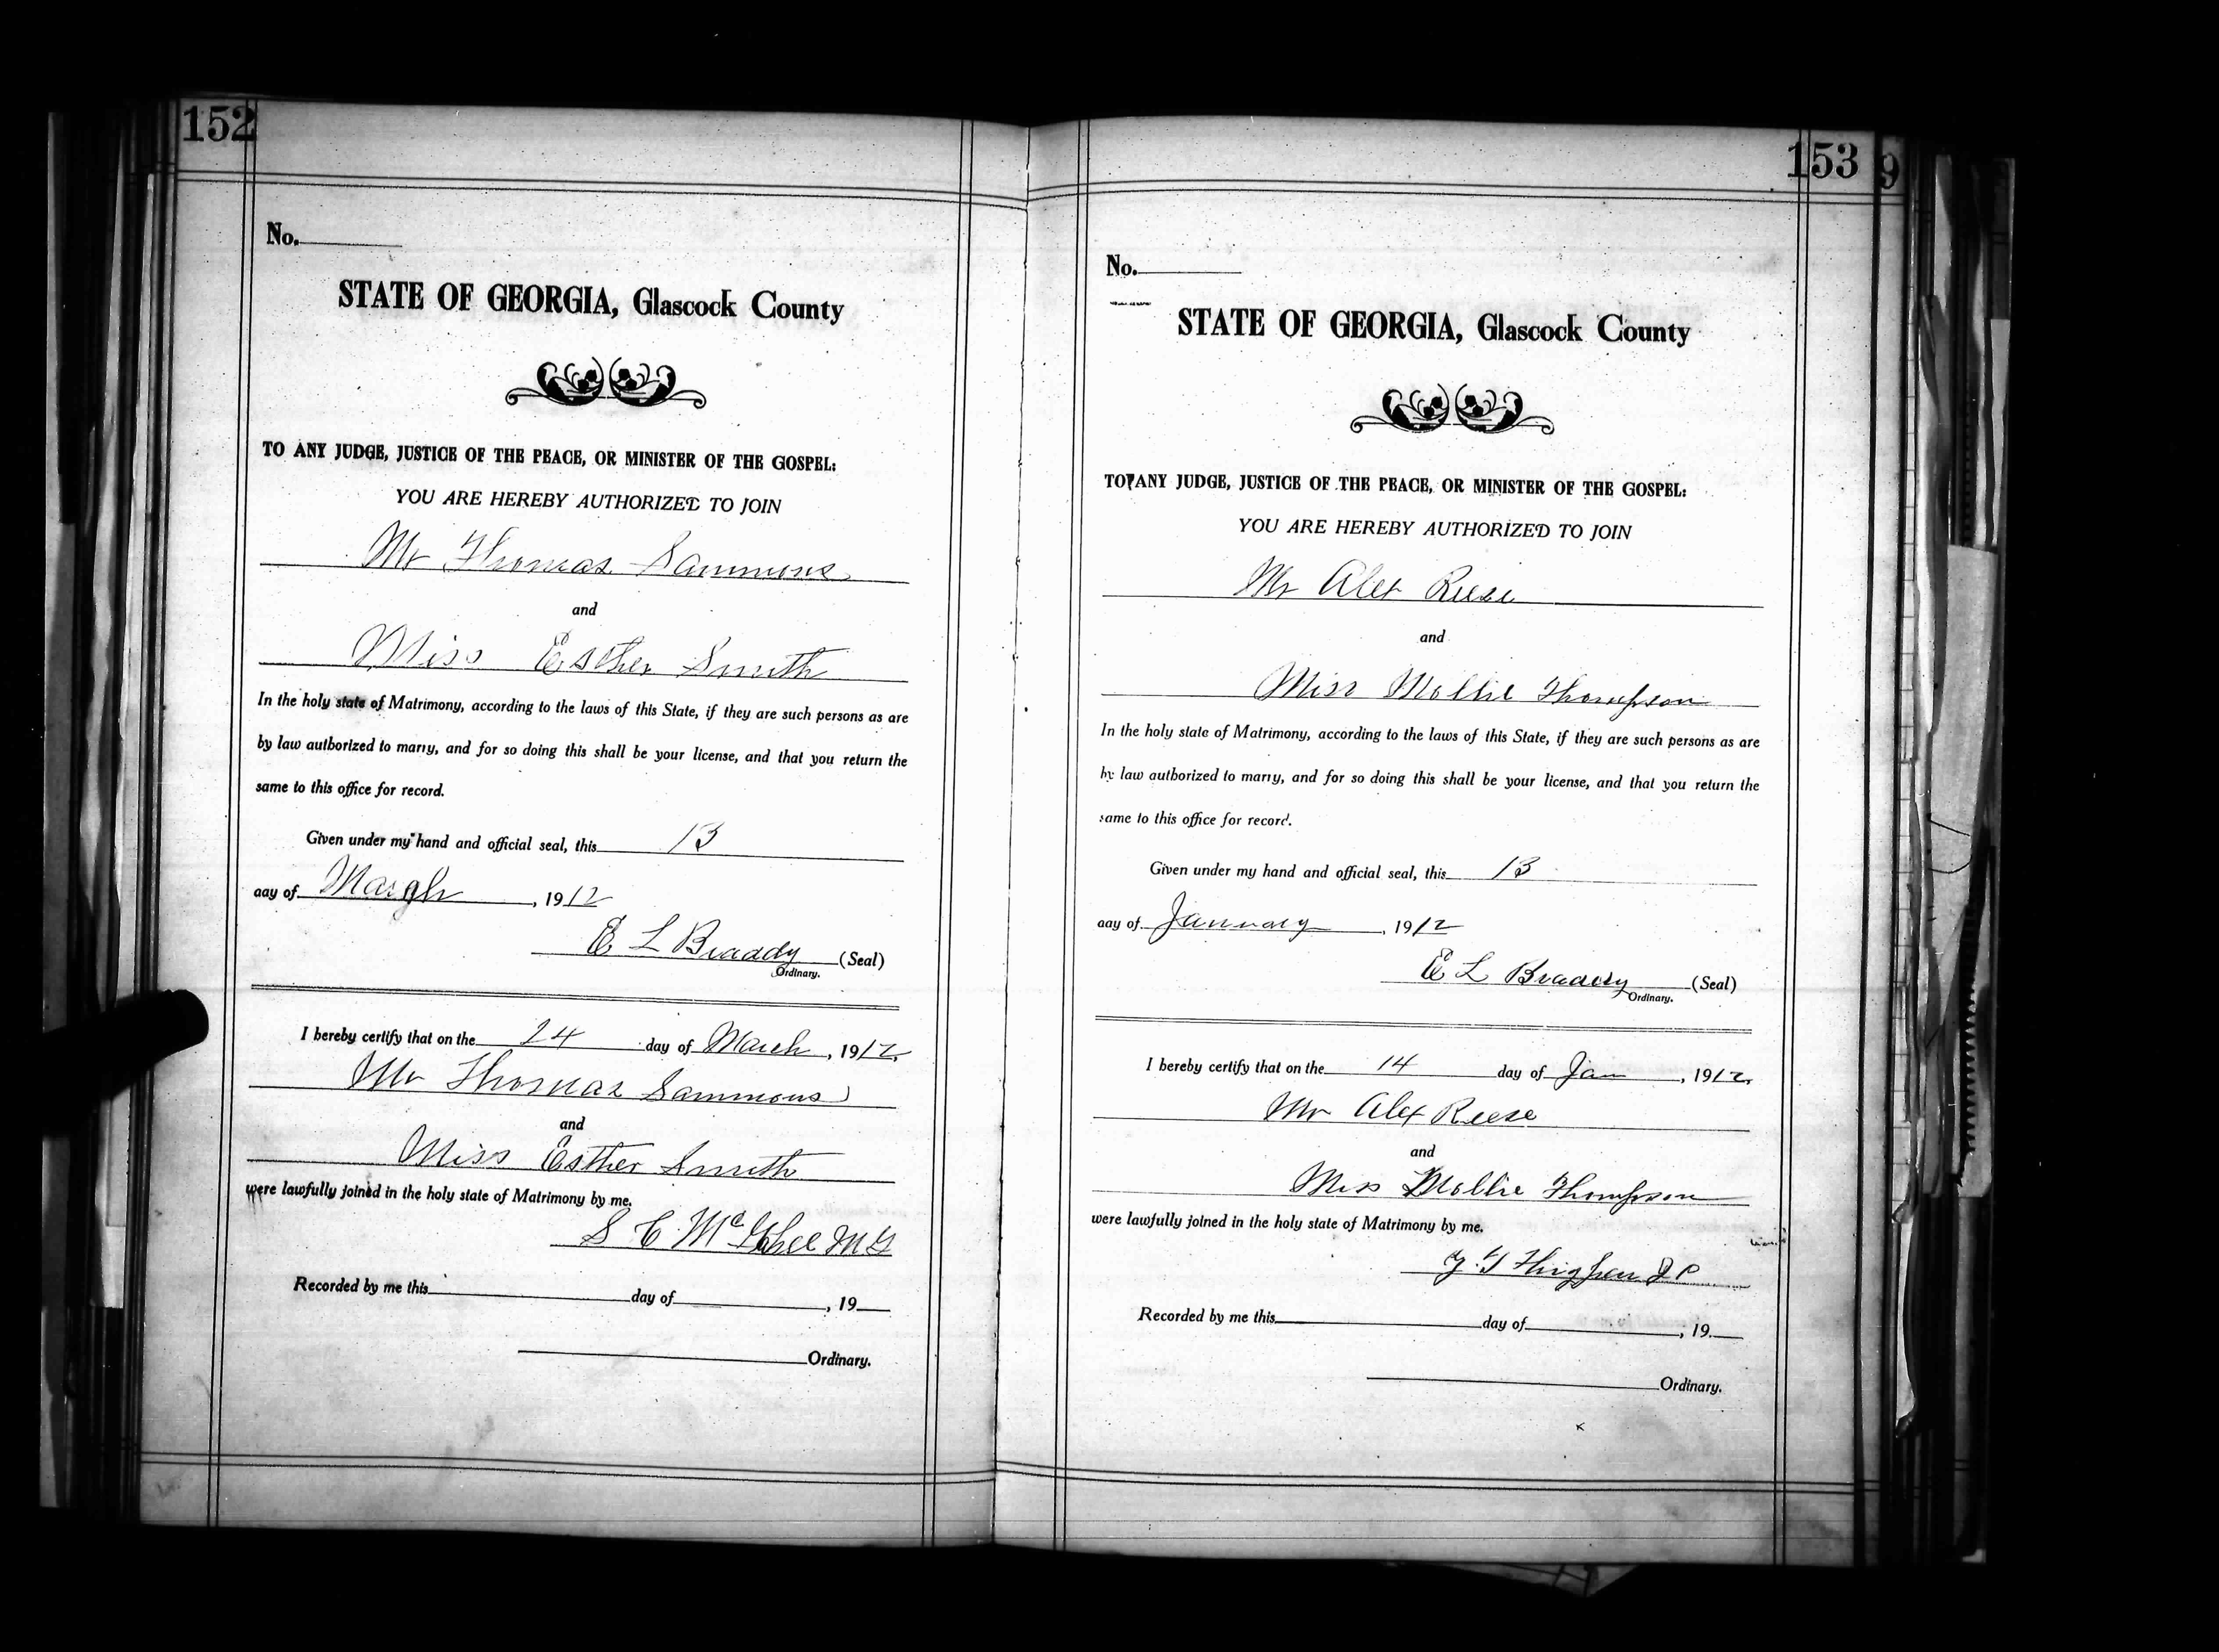 152
No.
STATE OF GEORGIA, Glascock County
TO ANY JUDGE, JUSTICE OF THE PEACE, OR MINISTER OF THE GOSPEL:
YOU ARE HEREBY AUTHORIZED TO JOIN
Mr Thomas Sammons
and
Miss Esther Smith
In the holy state of Matrimony, according to the laws of this State, if they are such persons as are
by law authorized to marry, and for so doing this shall be your license, and that you return the
same to this office for record.
Given under my hand and official seal, this 13
day of March, 1912
E L Braddy (Seal)
Ordinary.
I hereby certify that on the 24 day of March, 1912,
Mr Thomas Sammons
and
Miss Esther Smith
were lawfully joined in the holy state of Matrimony by me.
S C McGhee M G
Recorded by me this day of , 19
Ordinary.
153 9
No.
STATE OF GEORGIA, Glascock County
TO ANY JUDGE, JUSTICE OF THE PEACE, OR MINISTER OF THE GOSPEL:
YOU ARE HEREBY AUTHORIZED TO JOIN
Mr Alex Reese
and
Miss Mollie Thompson
In the holy state of Matrimony, according to the laws of this State, if they are such persons as are
by law authorized to marry, and for so doing this shall be your license, and that you return the
same to this office for record.
Given under my hand and official seal, this 13
day of January, 1912
E L Braddy (Seal)
Ordinary.
I hereby certify that on the 14 day of Jan, 1912,
Mr Alex Reese
and
Miss Mollie Thompson
were lawfully joined in the holy state of Matrimony by me.
J P
Recorded by me this day of , 19
Ordinary.